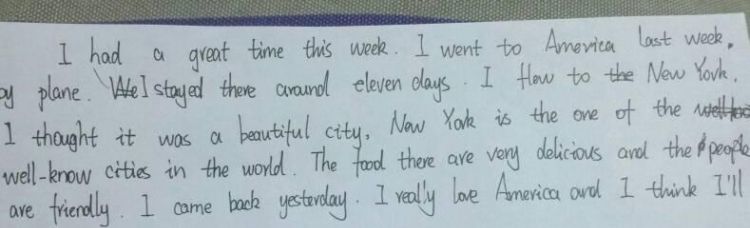 I had a great time this week. I went to America last week,
by plane. I stayed there around eleven days. I flow to New York.
I thought it was a beautiful city, New York is the one of the
well-know cities in the world. The food there are very delicious and the people
are friendly. I came back yesterday. I really love America and I think I'll